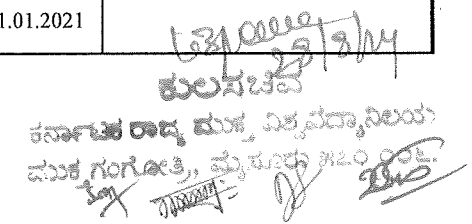 1.01.2021
28/8/24
ಕುಲಸಚಿವ
ಕರ್ನಾಟಕ ರಾಜ್ಯ ಮುಕ್ತ ವಿಶ್ವವಿದ್ಯಾನಿಲಯ
ಮುಕ್ತ ಗಂಗೋತ್ರಿ, ಮೈಸೂರು ೫೭೦ ೦೦೬.